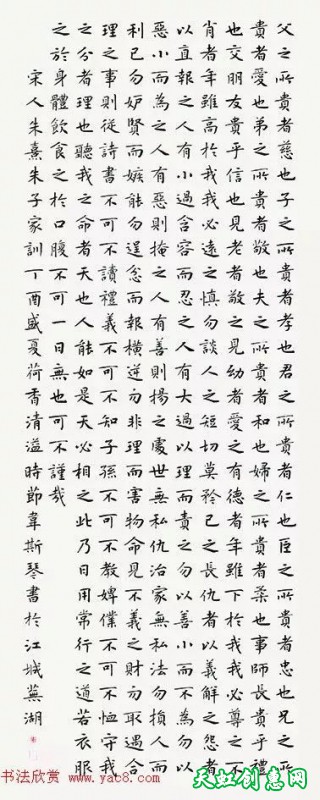 父之所貴者慈也子之所貴者孝也君之所貴者仁也臣之所貴者忠也兄之所
貴者愛也弟之所貴者敬也夫之所貴者和也婦之所貴者柔也事師長貴乎禮
也交朋友貴乎信也見老者敬之見幼者愛之有德者年雖下於我我必尊之不
肖者年雖高於我必遠之慎勿談人之短切莫矜己之長仇者以義解之怨者
以直報之人有小過含容而忍之人有大過以理而責之勿以善小而不為勿以
惡小而為之人有惡則掩之人有善則揚之處世無私仇治家無私法勿損人而
利己勿妒賢而嫉能勿逞忿而報橫逆勿非理而害物命見不義之財勿取遇合
理之事則從詩書不可不讀禮義不可不知子孫不可不教婢僕不可不恤守我
之分者理也聽我之命者天也人能如是天必相之此乃日用常行之道若衣服
之於身體飲食之於口腹不可一日無也可不謹哉
宋人朱熹朱子家訓丁酉盛夏荷香清溢時節韋斯琴書於江城蕪湖
书法欣赏 www.yac8.com
天虹创意网